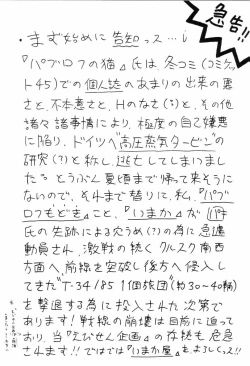 急告!!
・まず始めに告知っス…!
『パブロフの猫』氏は冬コミ(コミケッ
ト45)での個人誌のあまりの出来の悪
さと、不本意さと、Hのなさ(?)と、その他
諸々諸事情により、極度の自己嫌悪
に陥り、ドイツへ"高圧蒸気タービン"の
研究(?)と称し、逃亡してしまいまし
た。とうぶん夏頃まで帰って来そうに
ないので、それまで替りに、私、『パブ
ロフもどき』こと、『いまか』が『パブ』
氏の失跡による穴うめ(?)の為に急遽
動員され、激戦の続くクルスク南西
方面へ、前線を突破し後方へ侵入し
てきた"T-34/85 1個旅団"(約30~40輌)
を撃退する為に投入された次第で
あります!戦線の崩壊は目前に迫って
おり、当『えびせん企画』の存続も危急
されます!!ではでは『いまか屋』をよろしくっス!!